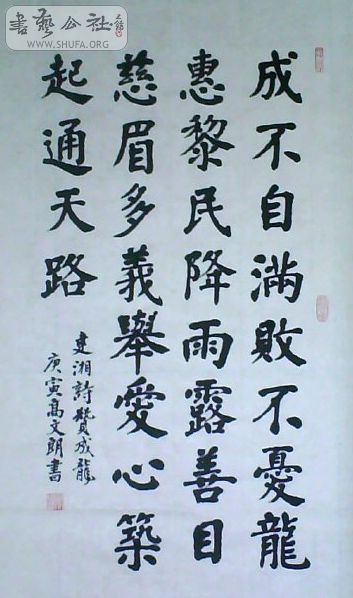 書藝公社
WWW.SHUFA.ORG
成不自滿敗不憂龍
惠黎民降雨露善目
慈眉多義舉愛心築
起通天路
建湘詩贊成龍
庚寅高文朗書